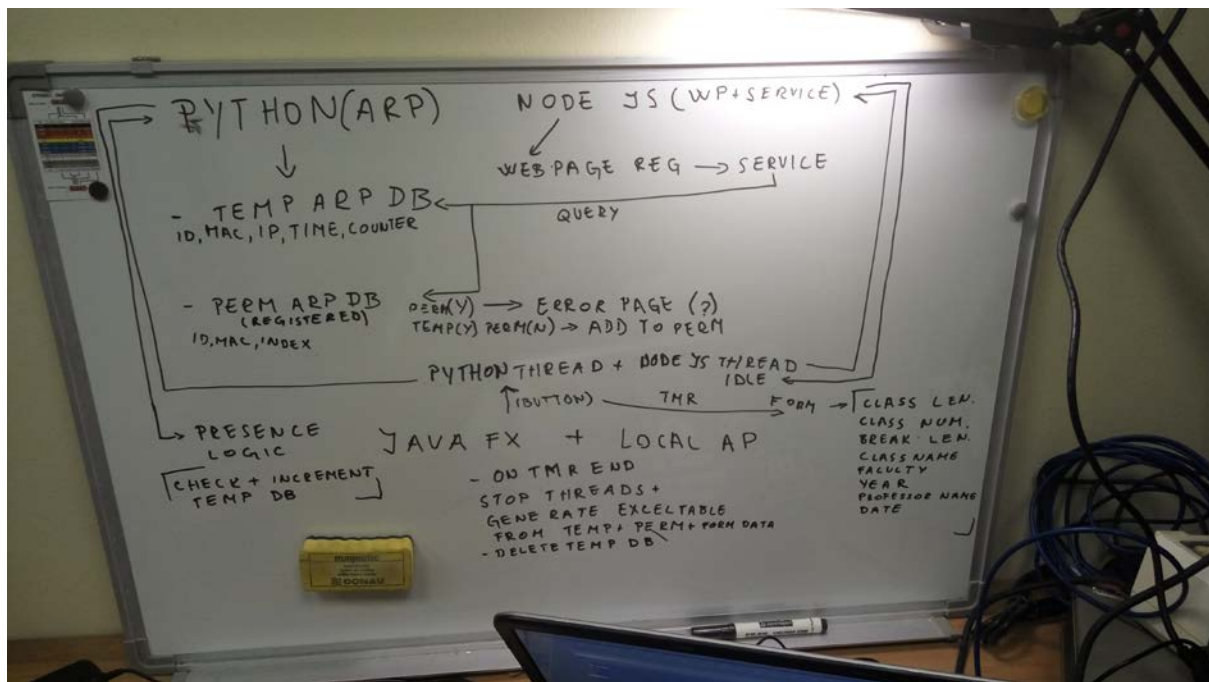 PYTHON(ARP)
NODE JS (WP+SERVICE)
WEB PAGE REG → SERVICE
QUERY
- TEMP ARP DB
ID, MAC, IP, TIME, COUNTER
- PERM ARP DB
(REGISTERED)
ID, MAC, INDEX
PERM(Y) → ERROR PAGE (?)
TEMP(Y) PERM(N) → ADD TO PERM
PYTHON THREAD + NODE JS THREAD
IDLE
(BUTTON)
TMR
FORM →
CLASS LEN.
CLASS NUM.
BREAK LEN.
CLASS NAME
FACULTY
YEAR
PROFESSOR NAME
DATE
PRESENCE
LOGIC
CHECK + INCREMENT
TEMP DB
JAVA FX + LOCAL AP
- ON TMR END
STOP THREADS +
GENERATE EXCEL TABLE
FROM TEMP + PERM + FORM DATA
- DELETE TEMP DB
magnetic
DONAU